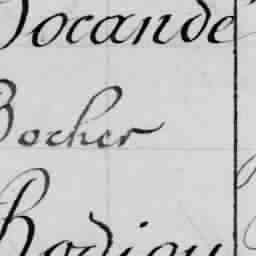 Bocande
Bocher
Bodiou